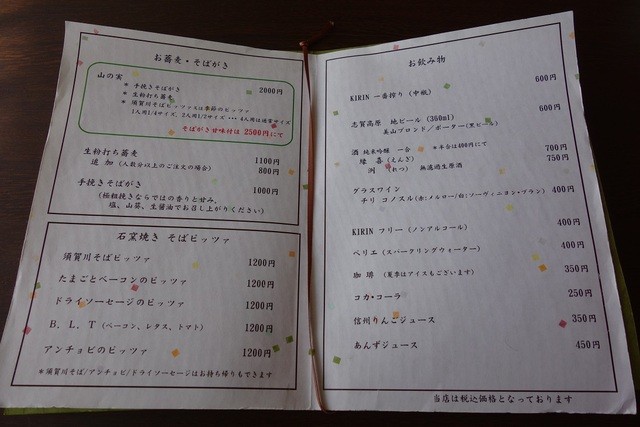 お蕎麦・そばがき
山の実 2000円
* 手挽きそばがき
* 生粉打ち蕎麦
* 須賀川そばピッツァ又は季節のピッツァ
1人用1/4サイズ、2人用1/2サイズ・・・4人用は通常サイズ
そばがき甘味付は 2500円にて
生粉打ち蕎麦 1100円
追加 (人数分以上のご注文の場合) 800円
手挽きそばがき 1000円
(極粗挽きならではの香りと甘み、
塩、山葵、生醤油でお召し上がりください)
石窯焼き そばピッツァ
須賀川そばピッツァ 1200円
たまごとベーコンのピッツァ 1200円
ドライソーセージのピッツァ 1200円
B.L.T (ベーコン、レタス、トマト) 1200円
アンチョビのピッツァ 1200円
*須賀川そば/アンチョビ/ドライソーセージはお持ち帰りもできます
お飲み物
KIRIN 一番搾り (中瓶) 600円
志賀高原 地ビール (360ml) 600円
美山ブロンド/ポーター(黒ビール)
酒 純米吟醸 一合 *半合は400円にて
縁喜 (えんぎ) 700円
洌 (れつ) 無濾過生原酒 750円
グラスワイン 400円
チリ コノスル(赤:メルロー/白:ソーヴィニヨン・ブラン)
KIRIN フリー (ノンアルコール) 400円
ペリエ (スパークリングウォーター) 400円
珈琲 (夏季はアイスもございます) 350円
コカ・コーラ 250円
信州りんごジュース 350円
あんずジュース 450円
当店は税込価格となっております